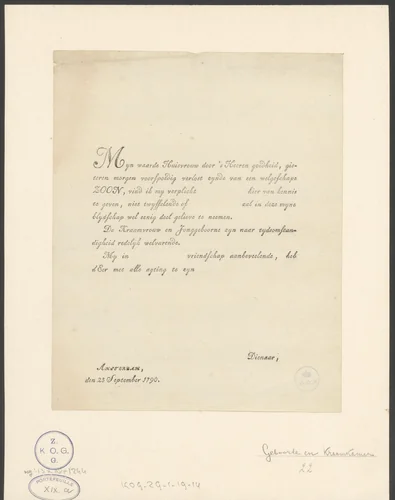 Myn waarde Huisvrouw door 's Heeren goedheid, gis-
teren morgen voorspoedig verlost zynde van een welgeschapen
ZOON, vind ik my verplicht hier van kennis
te geven, niet twyffelende of zal in deze myne
blydschap wel eenig deel gelieve te neemen.
De Kraamvrouw en Jonggeboorne zyn naar tydsomstan-
digheid redelyk welvarende.
My in vriendschap aanbevelende, heb
d'Eer met alle agting te zyn
Dienaar,
Amsterdam,
den 23 September 1790.
Z.
K.O.G.
G.
PORTEFEUILLE
XIX a
KOG-ZG-1-19-14
Geboorte en
22